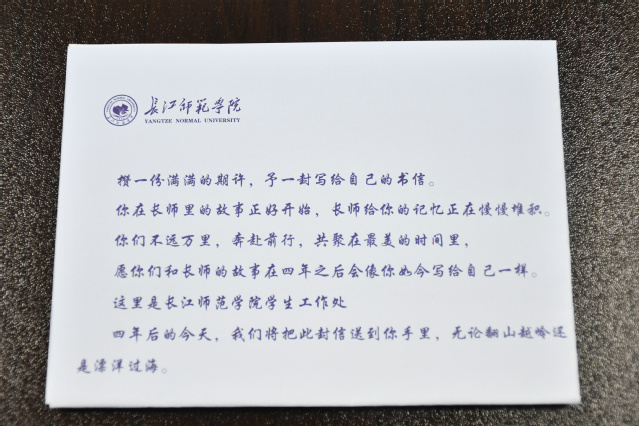 長江師範學院
YANGTZE NORMAL UNIVERSITY
攒一份满满的期许，予一封写给自己的书信。
你在长师里的故事正好开始，长师给你的记忆正在慢慢堆积。
你们不远万里，奔赴前行，共聚在最美的时间里，
愿你们和长师的故事在四年之后会像你如今写给自己一样。
这里是长江师范学院学生工作处
四年后的今天，我们将把此封信送到你手里，无论翻山越岭还
是漂洋过海。